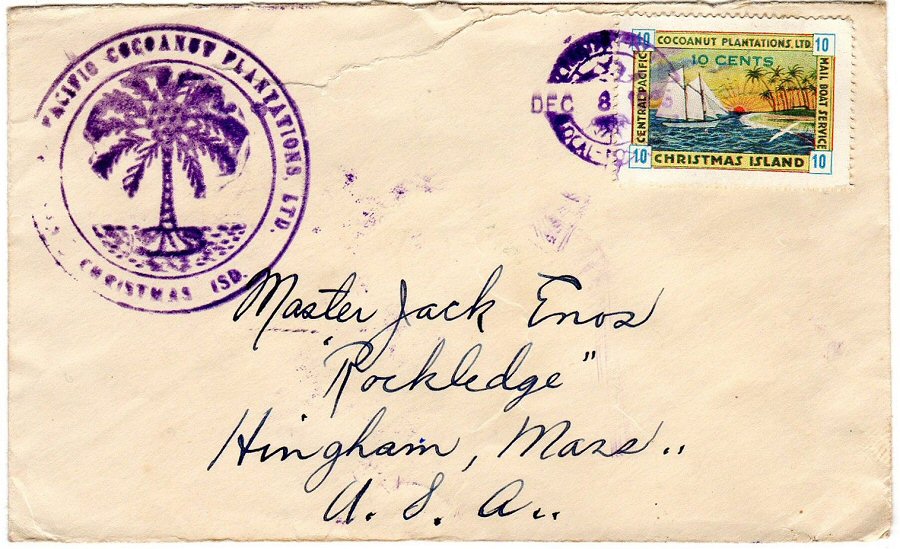 PACIFIC COCOANUT PLANTATIONS LTD.
CHRISTMAS ISD.
DEC 8
10 COCOANUT PLANTATIONS, LTD. 10
10 CENTS
CENTRAL PACIFIC
MAIL BOAT SERVICE
10 CHRISTMAS ISLAND 10
Master Jack Enos
"Rockledge"
Hingham, Mass..
U. S. A..